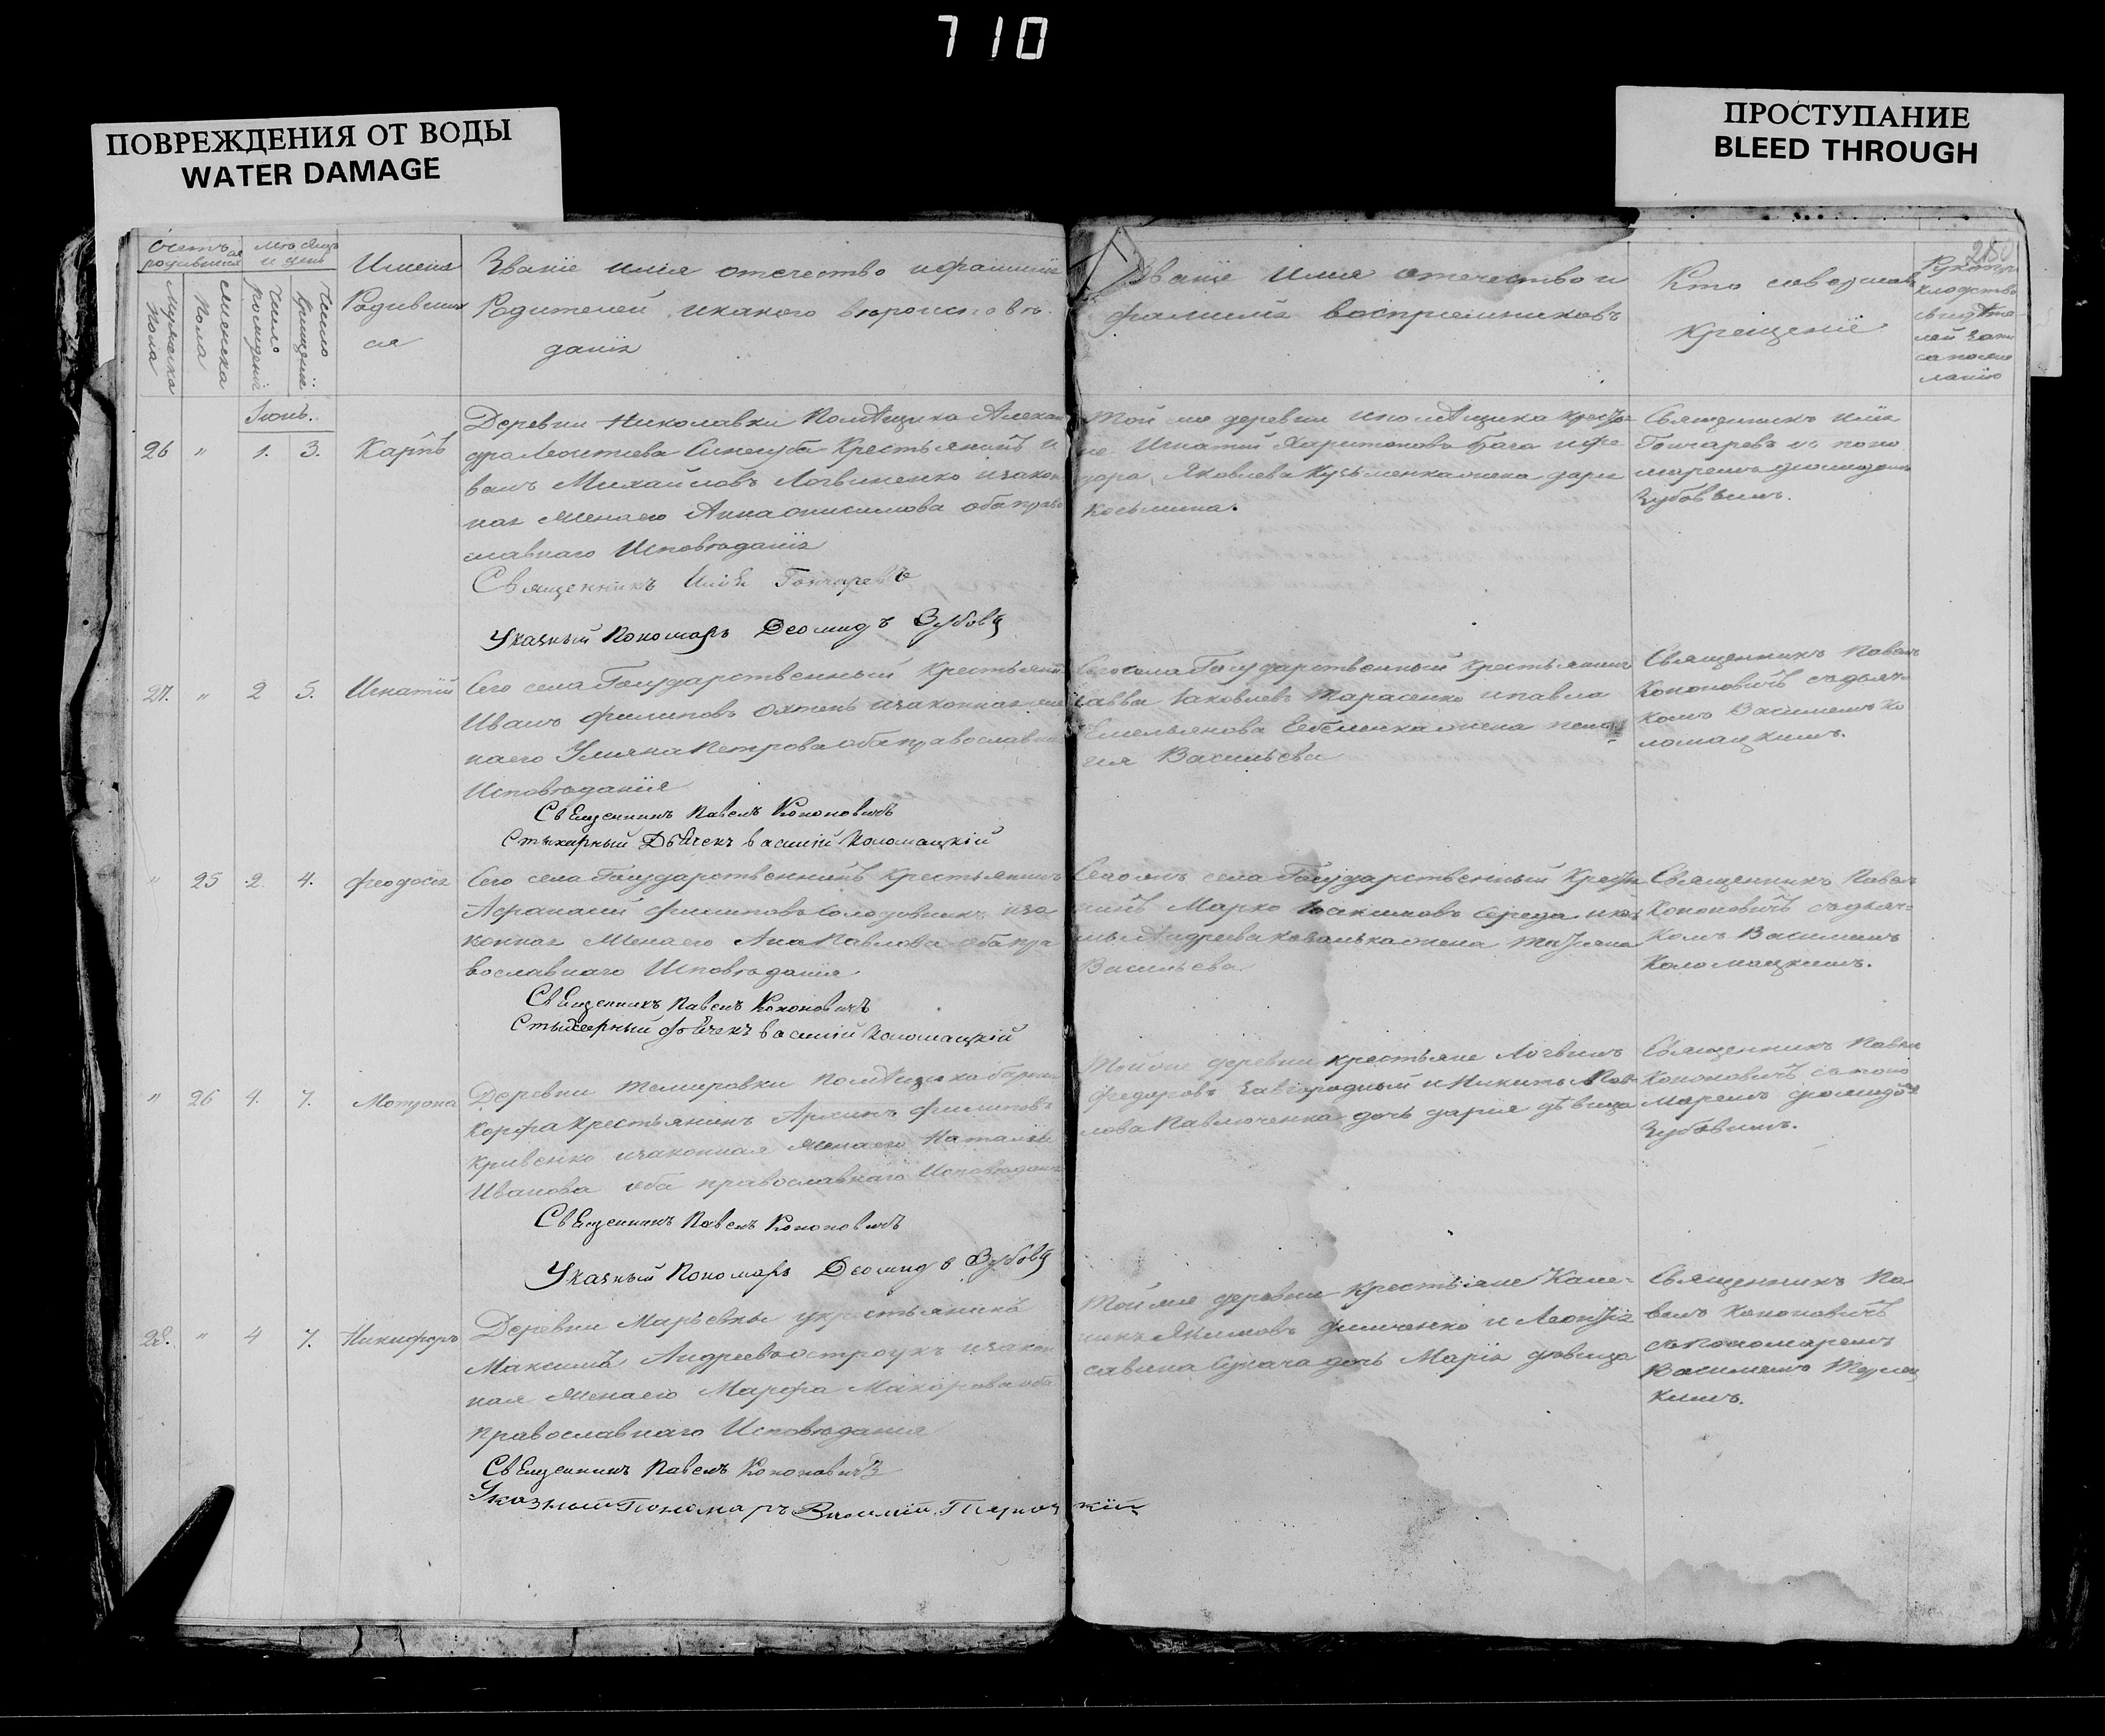 710
ПОВРЕЖДЕНИЯ ОТ ВОДЫ
WATER DAMAGE
ПРОСТУПАНИЕ
BLEED THROUGH
Счетъ родившихся
Мужеска пола
Женска пола
Мѣсяцъ и день
Число рожденія
Число крещенія
Имена
Родивших
ся
Званіе имя отечество и фамилія
Родителей, и какого вѣроисповѣ-
данія
Званіе имя отечество и
фамилія воспріемниковъ
Кто совершалъ
крещеніе
280
Іюнь.
26 " 1. 3. Карпъ
Деревни Николавки Помѣщика Алекса
Крестьянинъ И
ванъ Михайловъ Логвиненко и закон
ная жена его Анна Онисимова оба право
славнаго Исповѣданія
Священникъ Илія Гончаревъ
Указный Пономарь Деомидъ Зубовъ
Той же деревни и помѣщика кресть
не Игнатій Харитоновъ и Фе
дора Яковлева Кузьменка жена Дарія
Косьмина.
Священникъ Илія
Гончаревъ съ поно
маремъ Діомидомъ
Зубовымъ.
27. " 2 5. Игнатій
Сего села Государственный Крестьянин
Иванъ Филиповъ и законная же
на его Улияна Петрова оба православна
Исповѣданія
Священникъ Павелъ Кононовичъ
Стыхарный Дьячекъ Василій Коломацкій
Сего села Государственный крестьянинъ
Савва Іаковлевъ Тарасенко и Павла
Емельянова жена Пела
гія Васильева
Священникъ Павелъ
Кононовичъ съ дьяч-
комъ Василіемъ Ко
ломацкимъ.
" 25 2. 4. Феодосія
Сего села Государственный Крестьянинъ
Филиповъ и за
конная жена его Ана Павлова оба пра
вославнаго Исповѣданія
Священникъ Павелъ Кононовичъ
Стыхарный Дьячекъ Василій Коломацкій
села Государственный Кресть
нинъ Марко Іоакимовъ Середа и
Андреева жена Татіяна
Васильева
Священникъ Павелъ
Кононовичъ съ дьяч-
комъ Василіемъ
Коломацкимъ.
" 26 4. 7. Мотрона
Деревни Темировки Помѣщика барона
Корфа Крестьянинъ Филиповъ
Кривенко и законная жена его Наталія
Иванова оба православнаго Исповѣданія
Священникъ Павелъ Кононовичъ
Указный Пономарь Деомидъ Зубовъ
Той же деревни крестьяне Логвинъ
Федоровъ Завгородный и Никиты Пав-
лова Павлюченка дочь Дарія дѣвица
Священникъ Павелъ
Кононовичъ съ поно
маремъ Діомидомъ
Зубовымъ.
28. " 4 7. Никифоръ
Деревни Марьевки крестьянинъ
Максимъ Андреевъ Остроухъ и закон
ная жена его Марфа Макарова оба
православнаго Исповѣданія
Священникъ Павелъ Кононовичъ
Указный Пономарь Василій
Той же деревни крестьяне
Якимовъ и Леонтія
дочь Марія дѣвица
Священникъ Па
велъ Кононовичъ
съ Пономаремъ
Василіемъ
кимъ.